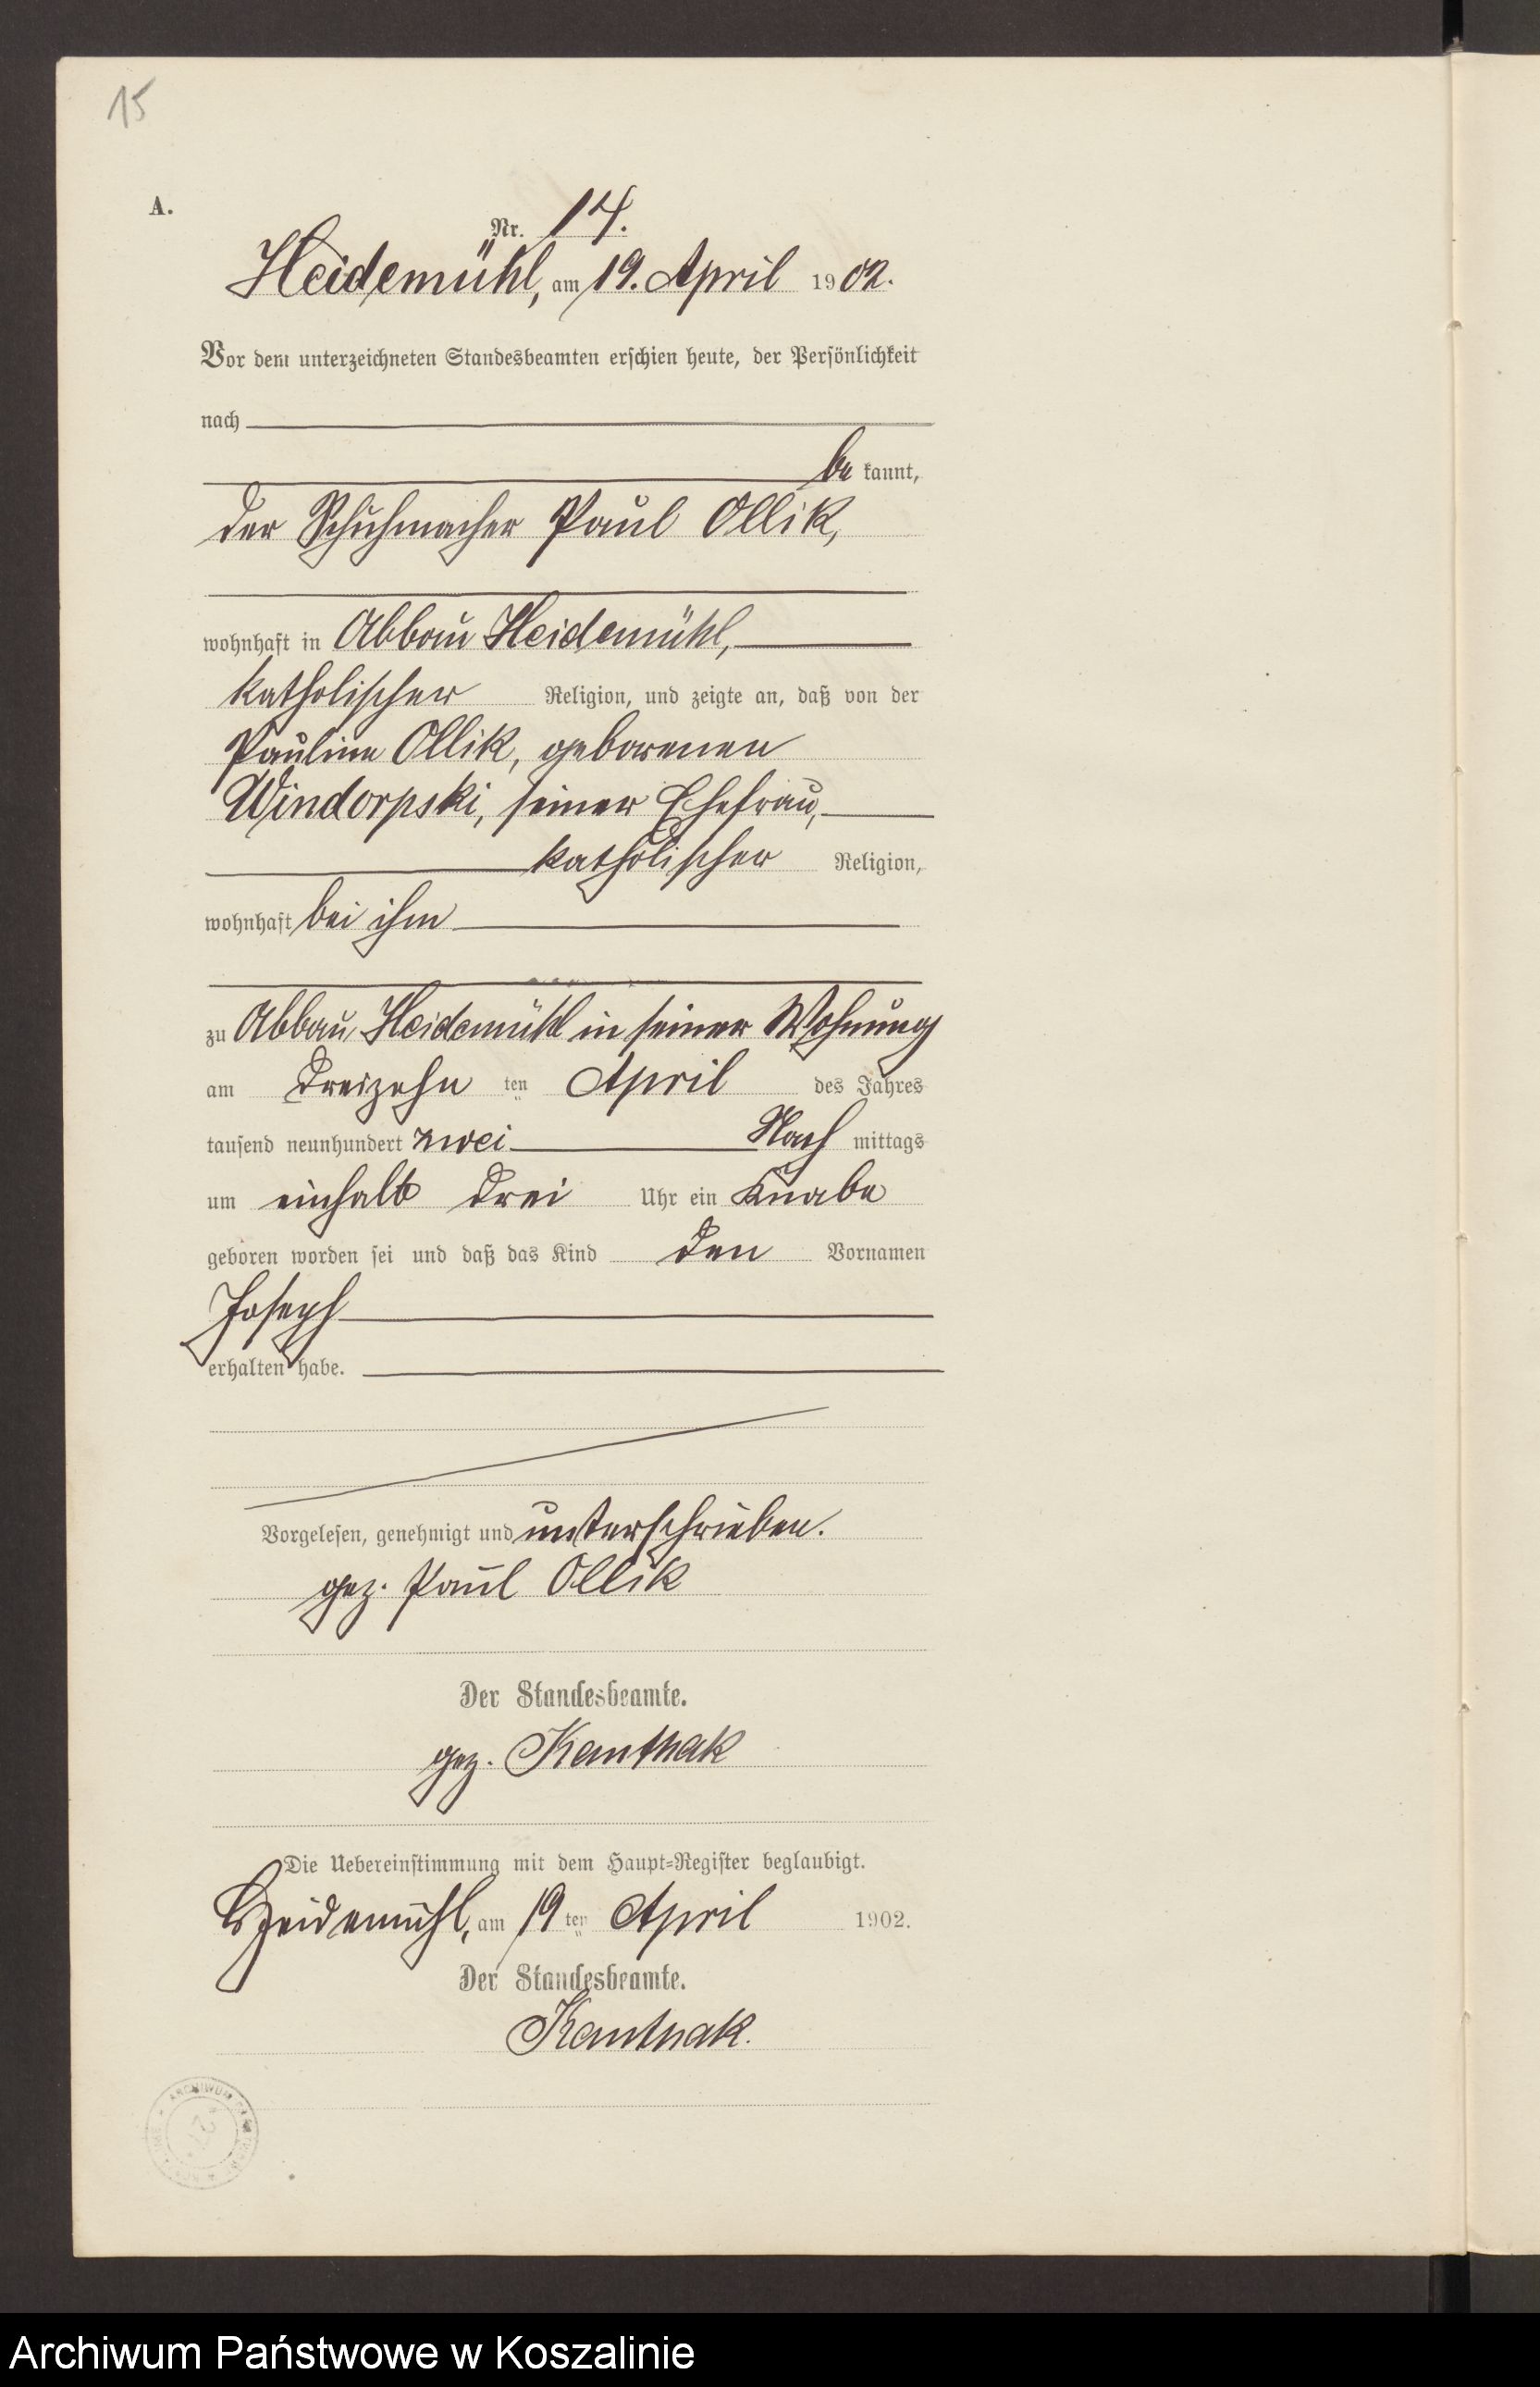 15
A.
Nr. 14.
Heidemühl, am 19. April 1902.
Vor dem unterzeichneten Standesbeamten erschien heute, der Persönlichkeit
nach
be kannt,
der Schuhmacher Paul Ollik,
wohnhaft in Abbau Heidemühl,
katholischer Religion, und zeigte an, daß von der
Pauline Ollik, geborenen
Windorpski, seiner Ehefrau,
katholischer Religion,
wohnhaft bei ihm
zu Abbau Heidemühl in seiner Wohnung
am dreizehn ten April des Jahres
tausend neunhundert zwei Nach mittags
um einhalb drei Uhr ein Knabe
geboren worden sei und daß das Kind den Vornamen
Joseph
erhalten habe.
Vorgelesen, genehmigt und unterschrieben.
gez. Paul Ollik
Der Standesbeamte.
gez. Kanthak
Die Uebereinstimmung mit dem Haupt-Register beglaubigt.
Heidemühl, am 19 ten April 1902.
Der Standesbeamte.
Kanthak.
ARCHIWUM
Archiwum Państwowe w Koszalinie